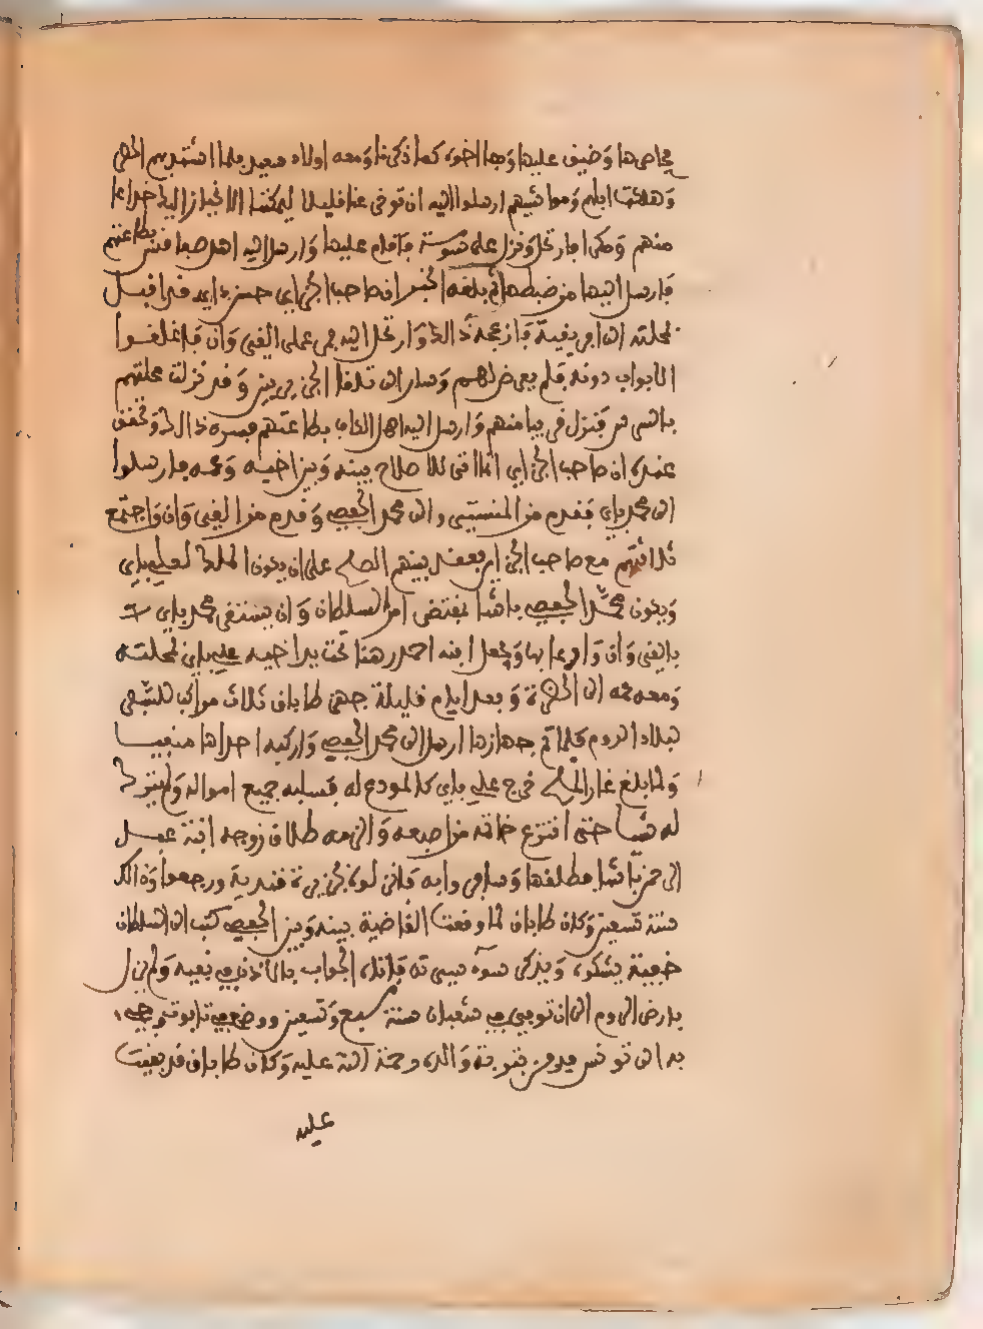 فحاصرها وضيق عليها وبها اخوه كما ذكرنا ومعه اولاد سعيد فلما اشتد بهم الحصر
وهلكت ابلهم ومواشيهم ارسلوا اليه ان توخر عنا قليلا ليمكننا الانحياز اليك خداعا
منهم ومكرا فارتحل ونزل على سوسة فاقام عليها وارسل اليه اهل صفاقس بطاعتهم
فارسل اليها من ضبطها ثم بلغه الخبر ان صاحب الجزاير حسن داي قد اقبل
بمحلته الى افريقية فازعجه ذالك وارتحل اليه فمر على القيروان فاغلقوا
الابواب دونه فلم يعرض لهم وسار الى تلقا الجزيريين وقد نزلت محلتهم
بالسرس فنزل قريبا منهم وارسل اليه اهل الكاف بطاعتهم فسره ذالك وتحقق
عنده ان صاحب الجزاير انما اتى للاصلاح بينه وبين اخيه وعمه فارسلوا
الى محمد باي فقدم من المنستير والى محمد الحفصي وقدم من القيروان واجتمع
ثلاثتهم مع صاحب الجزاير فعقد بينهم الصلح على ان يكون الملك لعلي باي
ويكون محمد الحفصي باشا بمقتضى امر السلطان وان يستقر محمد باي
بالقيروان واعمالها وجعل ابنه احمد رهنا تحت يد اخيه علي باي بمحلته
ومعه عمه الى الحضرة وبعد ايام قليلة جهز طاباق ثلاث مراكب للسفر
لبلاد الروم فلما تم جهازها ارسل الى محمد الحفصي واركبه احداها منفيا
ولما بلغ غار الملح خرج علي باي كالمودع له فسلبه جميع امواله ولم يترك
له شيا حتى انتزع خاتمه من اصبعه والزمه طلاق زوجه ابنة
الى حمزة باشا فطلقها وسافر به فانزلوه بجزيرة قندية ورجعوا وذالك
سنة تسعين وكان طاباق لما وقعت القاضية بينه وبين الحفصي كتب الى السلطان
خفية يشكوه ويذكر سوء سيرته فاتاه الجواب بالاذن في نفيه ولم يزل
بارض الروم الى ان توفي في شعبان سنة سبع وتسعين ووضع في تابوت وجيء
به الى تونس فدفن بتربة والده رحمة الله عليه وكان طاباق قد بقيت
عليه